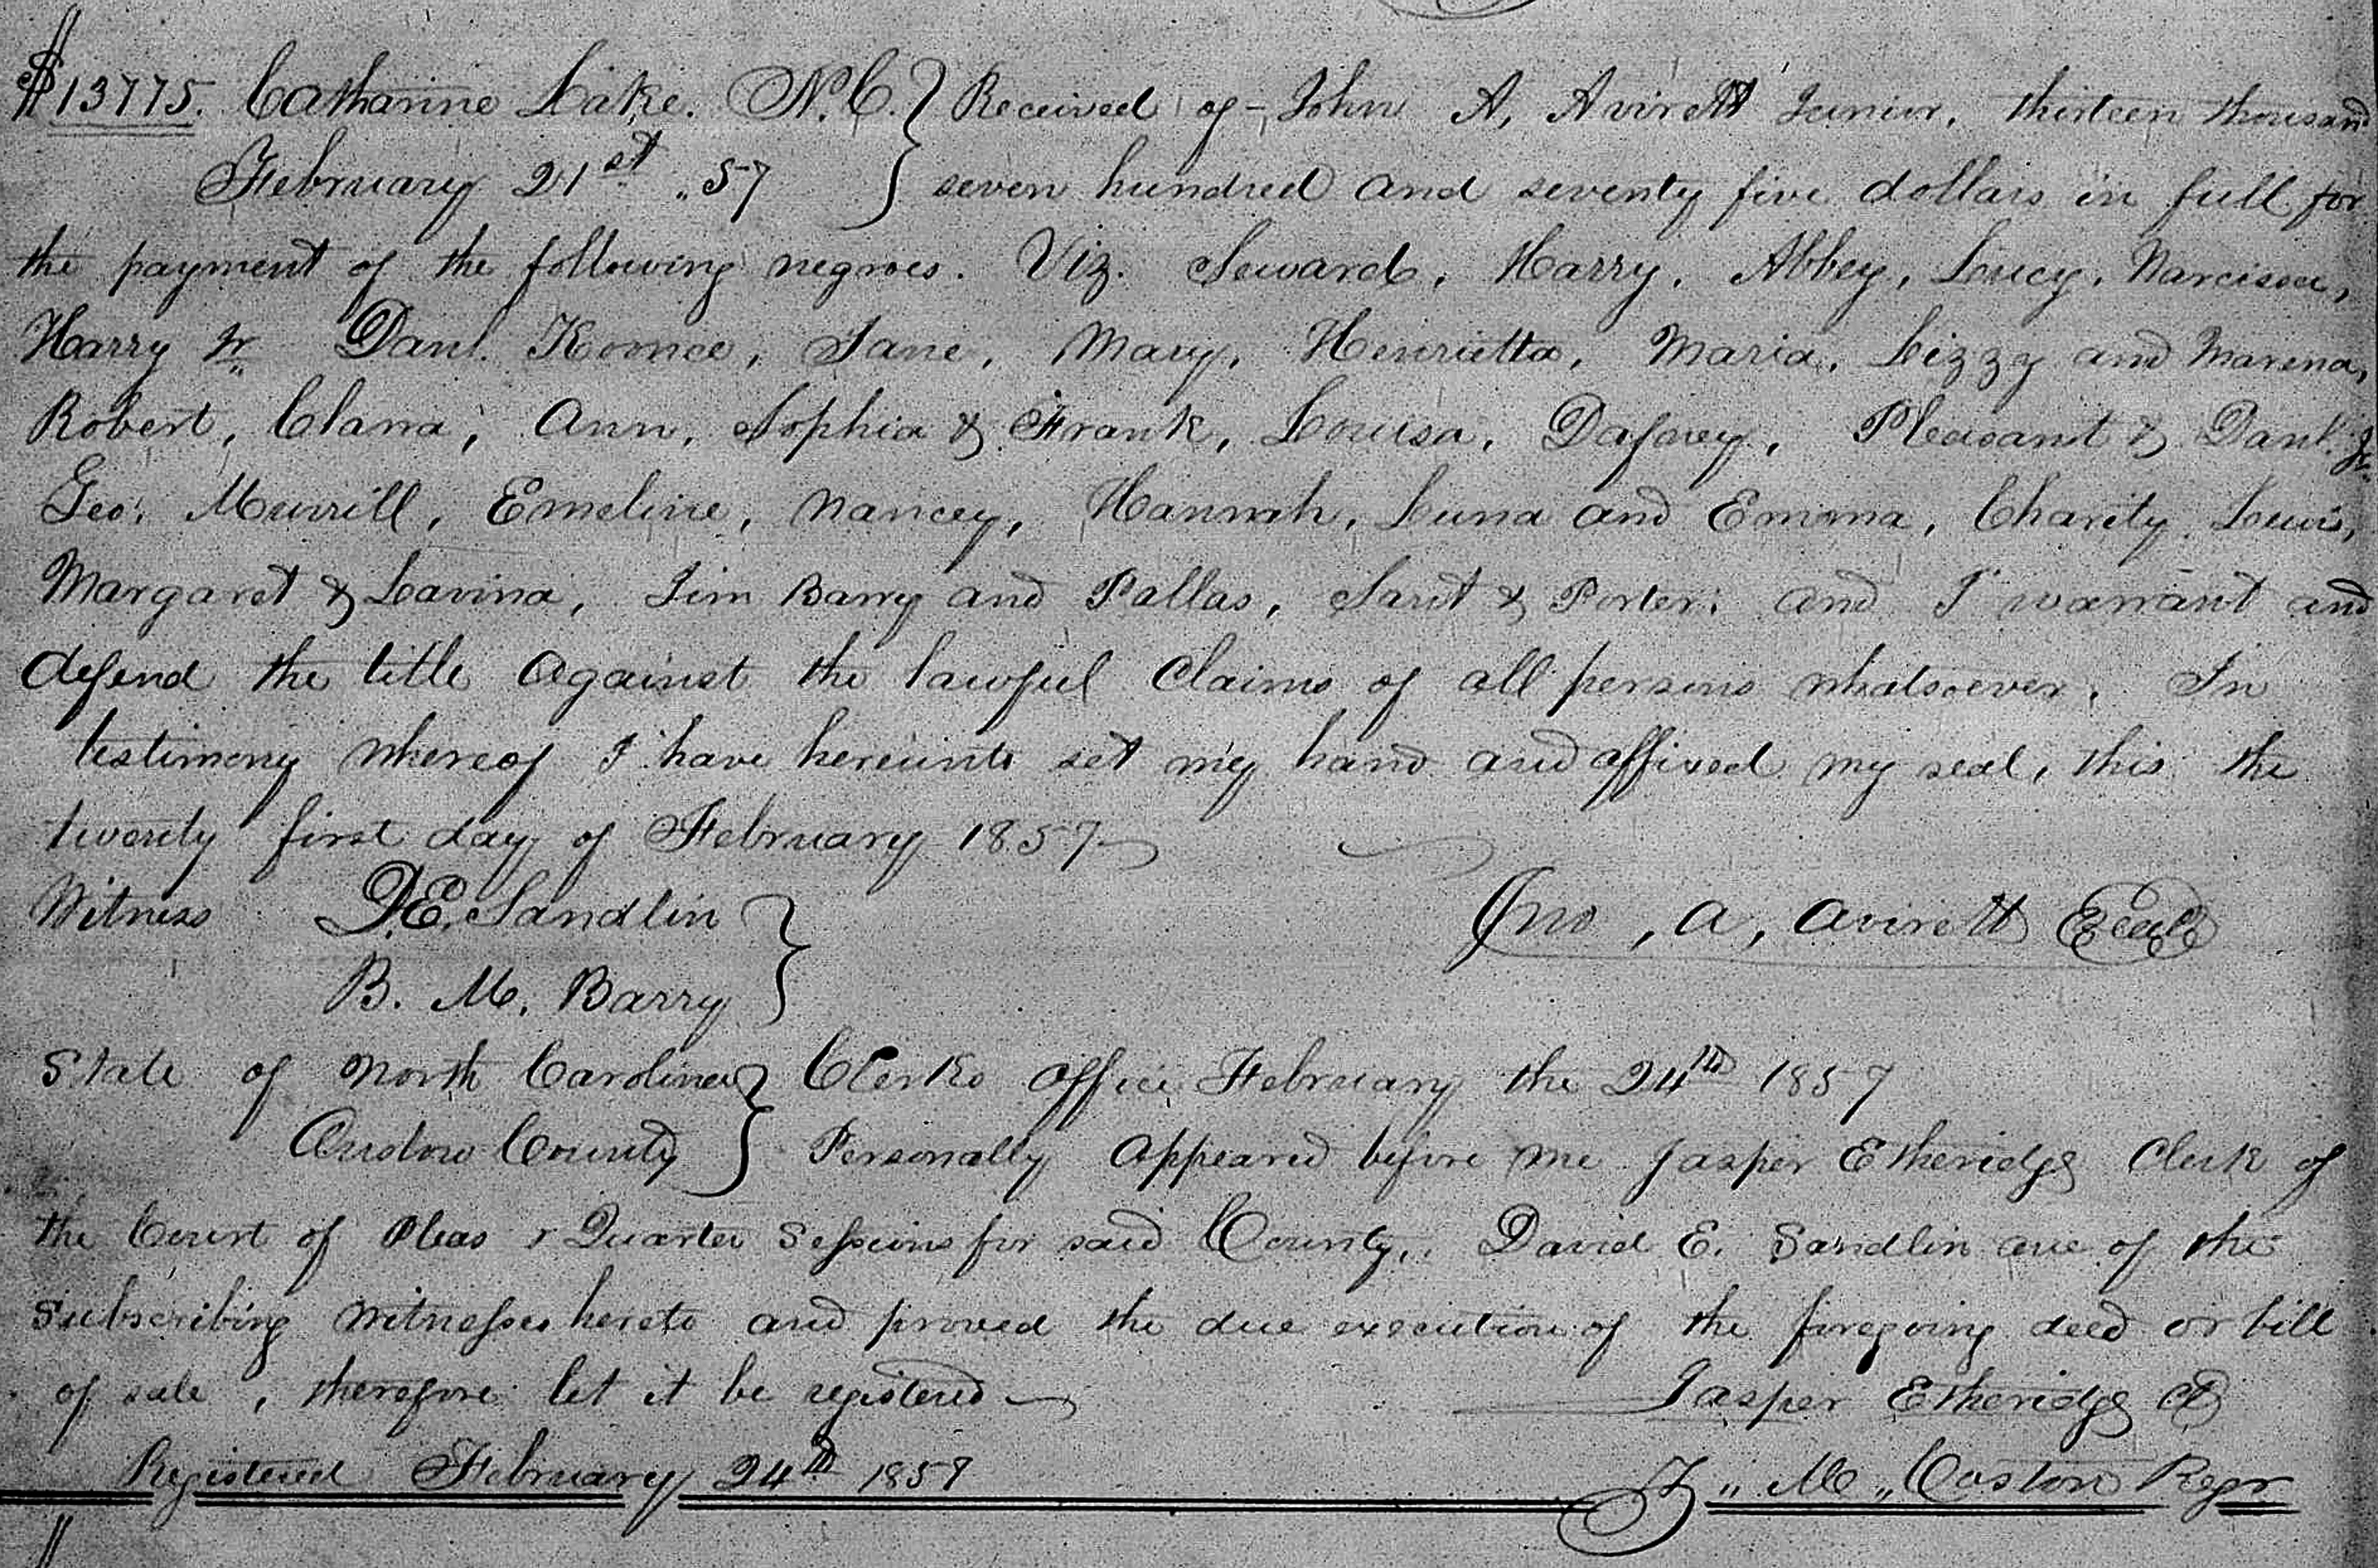 $13775. Catharine Lake. N.C. } Received of John A, Avirett Junior, thirteen thousand
February 21st „ 57 } seven hundred and seventy five dollars in full for
the payment of the following negroes. Viz. Seward, Harry, Abbey, Lucy, Narcissa,
Harry Jr Danl. Koonce, Jane, Mary, Henrietta, Maria, Lizzy and Marena,
Robert, Clara, Ann, Sophia & Frank, Louisa, Dafney, Pleasant & Danl. Jr
Geo. Murrill, Emeline, Nancey, Hannah, Luna and Emma, Charity, Lewis,
Margaret & Lavina, Jim Barry and Pallas, & Porter: and I warrant and
defend the title against the lawful claims of all persons whatsoever. In
testimony whereof I have hereunto set my hand and affixed my seal, this the
twenty first day of February 1857
Witness D.E. Sandlin }
Jno, A, Avirett Seal
B. M. Barry }
State of North Carolina } Clerks office February the 24th 1857
Onslow County } Personally appeared before me Jasper Etheridge Clerk of
the Court of Pleas & Quarter Sessions for said County,. David E. Sandlin one of the
subscribing witnesses hereto and proved the due execution of the foregoing deed or bill
of sale, therefore let it be registered
Jasper Etheridge Clk
Registered February 24th 1857
„ M „ Coston Regr